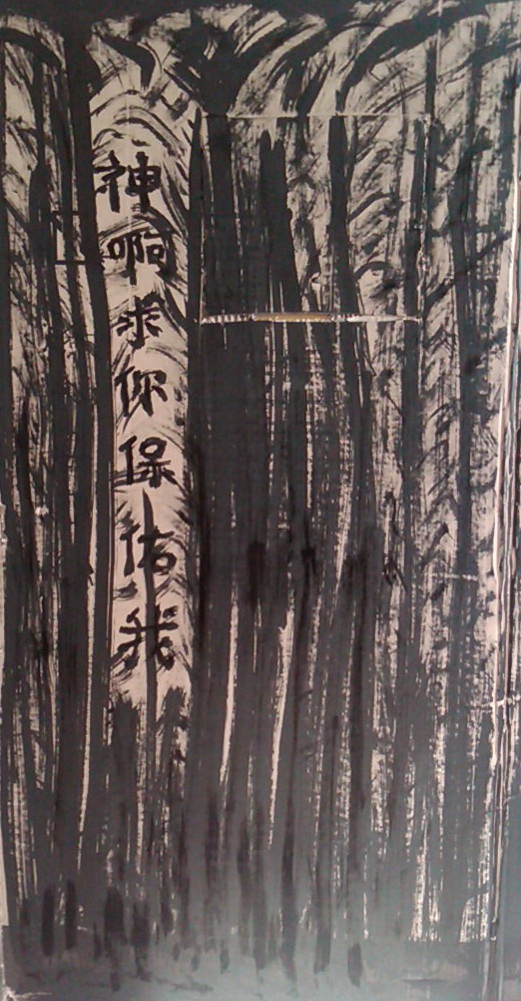 神啊求你保佑我